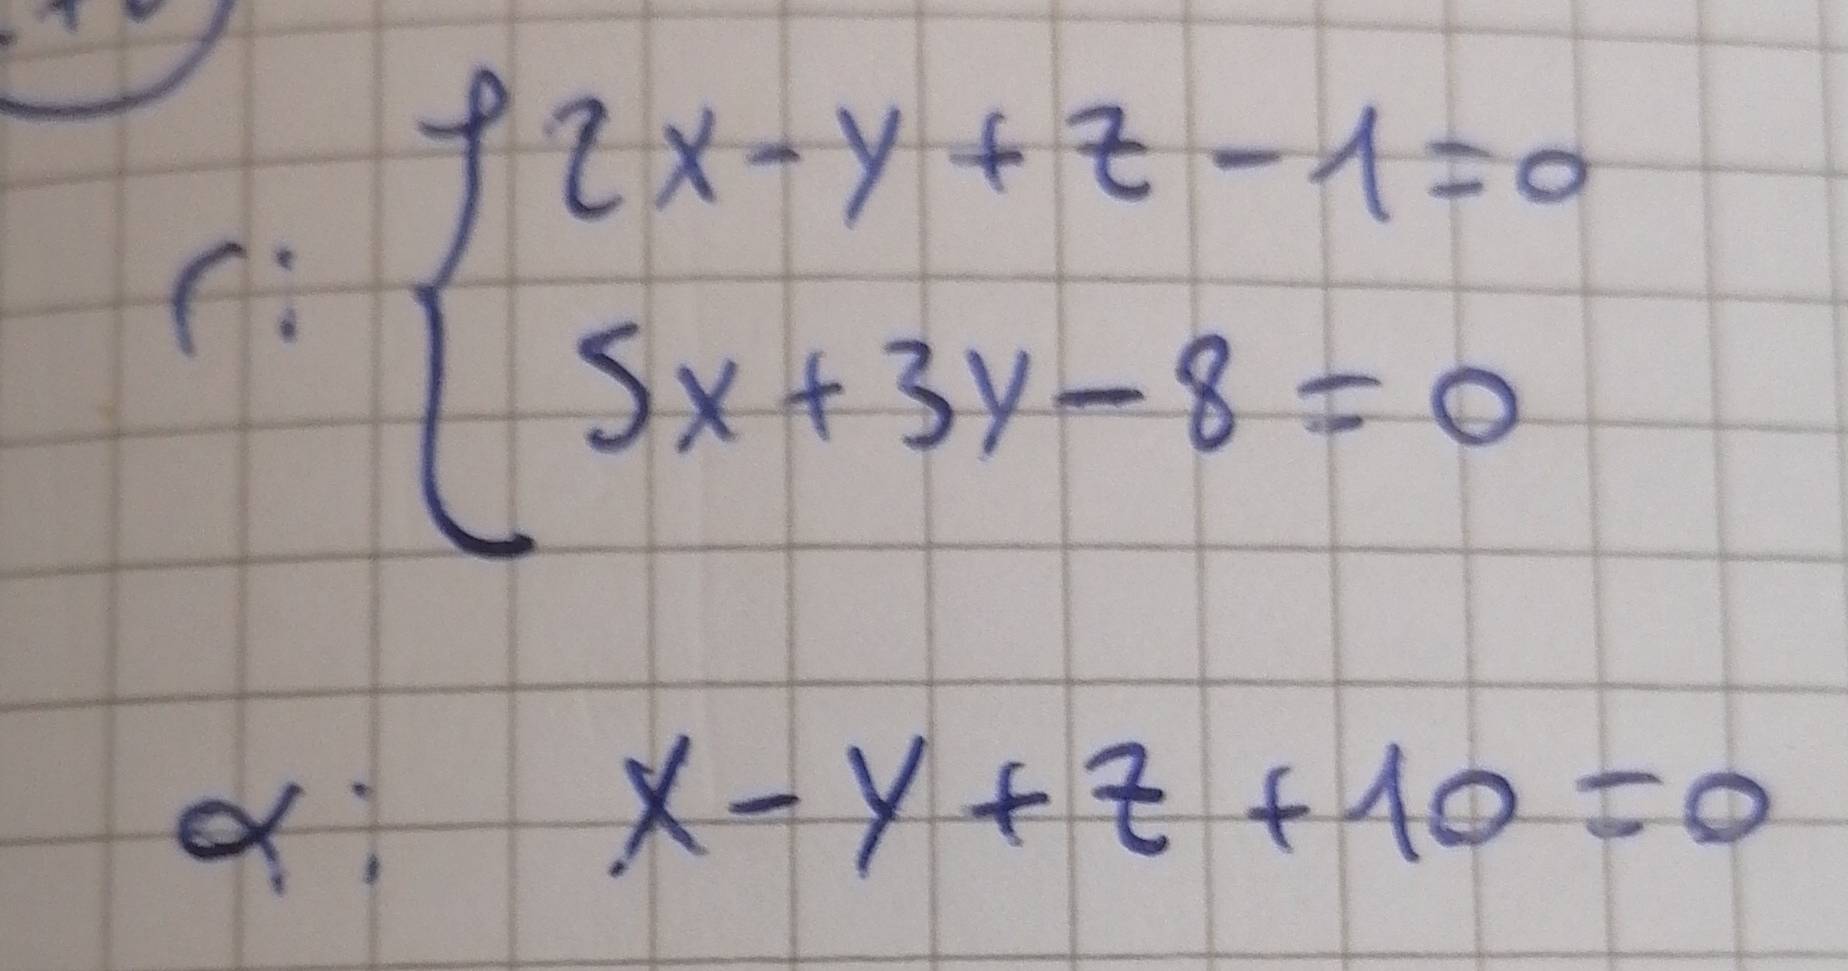 r: { 2x - y + z - 1 = 0
5x + 3y - 8 = 0
α: x - y + z + 10 = 0